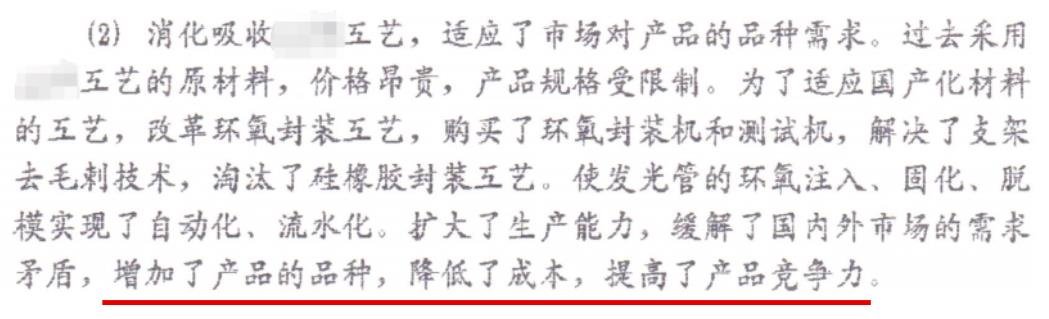 (2) 消化吸收工艺，适应了市场对产品的品种需求。过去采用
工艺的原材料，价格昂贵，产品规格受限制。为了适应国产化材料
的工艺，改革环氧封装工艺，购买了环氧封装机和测试机，解决了支架
去毛刺技术，淘汰了硅橡胶封装工艺。使发光管的环氧注入、固化、脱
模实现了自动化、流水化。扩大了生产能力，缓解了国内外市场的需求
矛盾，增加了产品的品种，降低了成本，提高了产品竞争力。